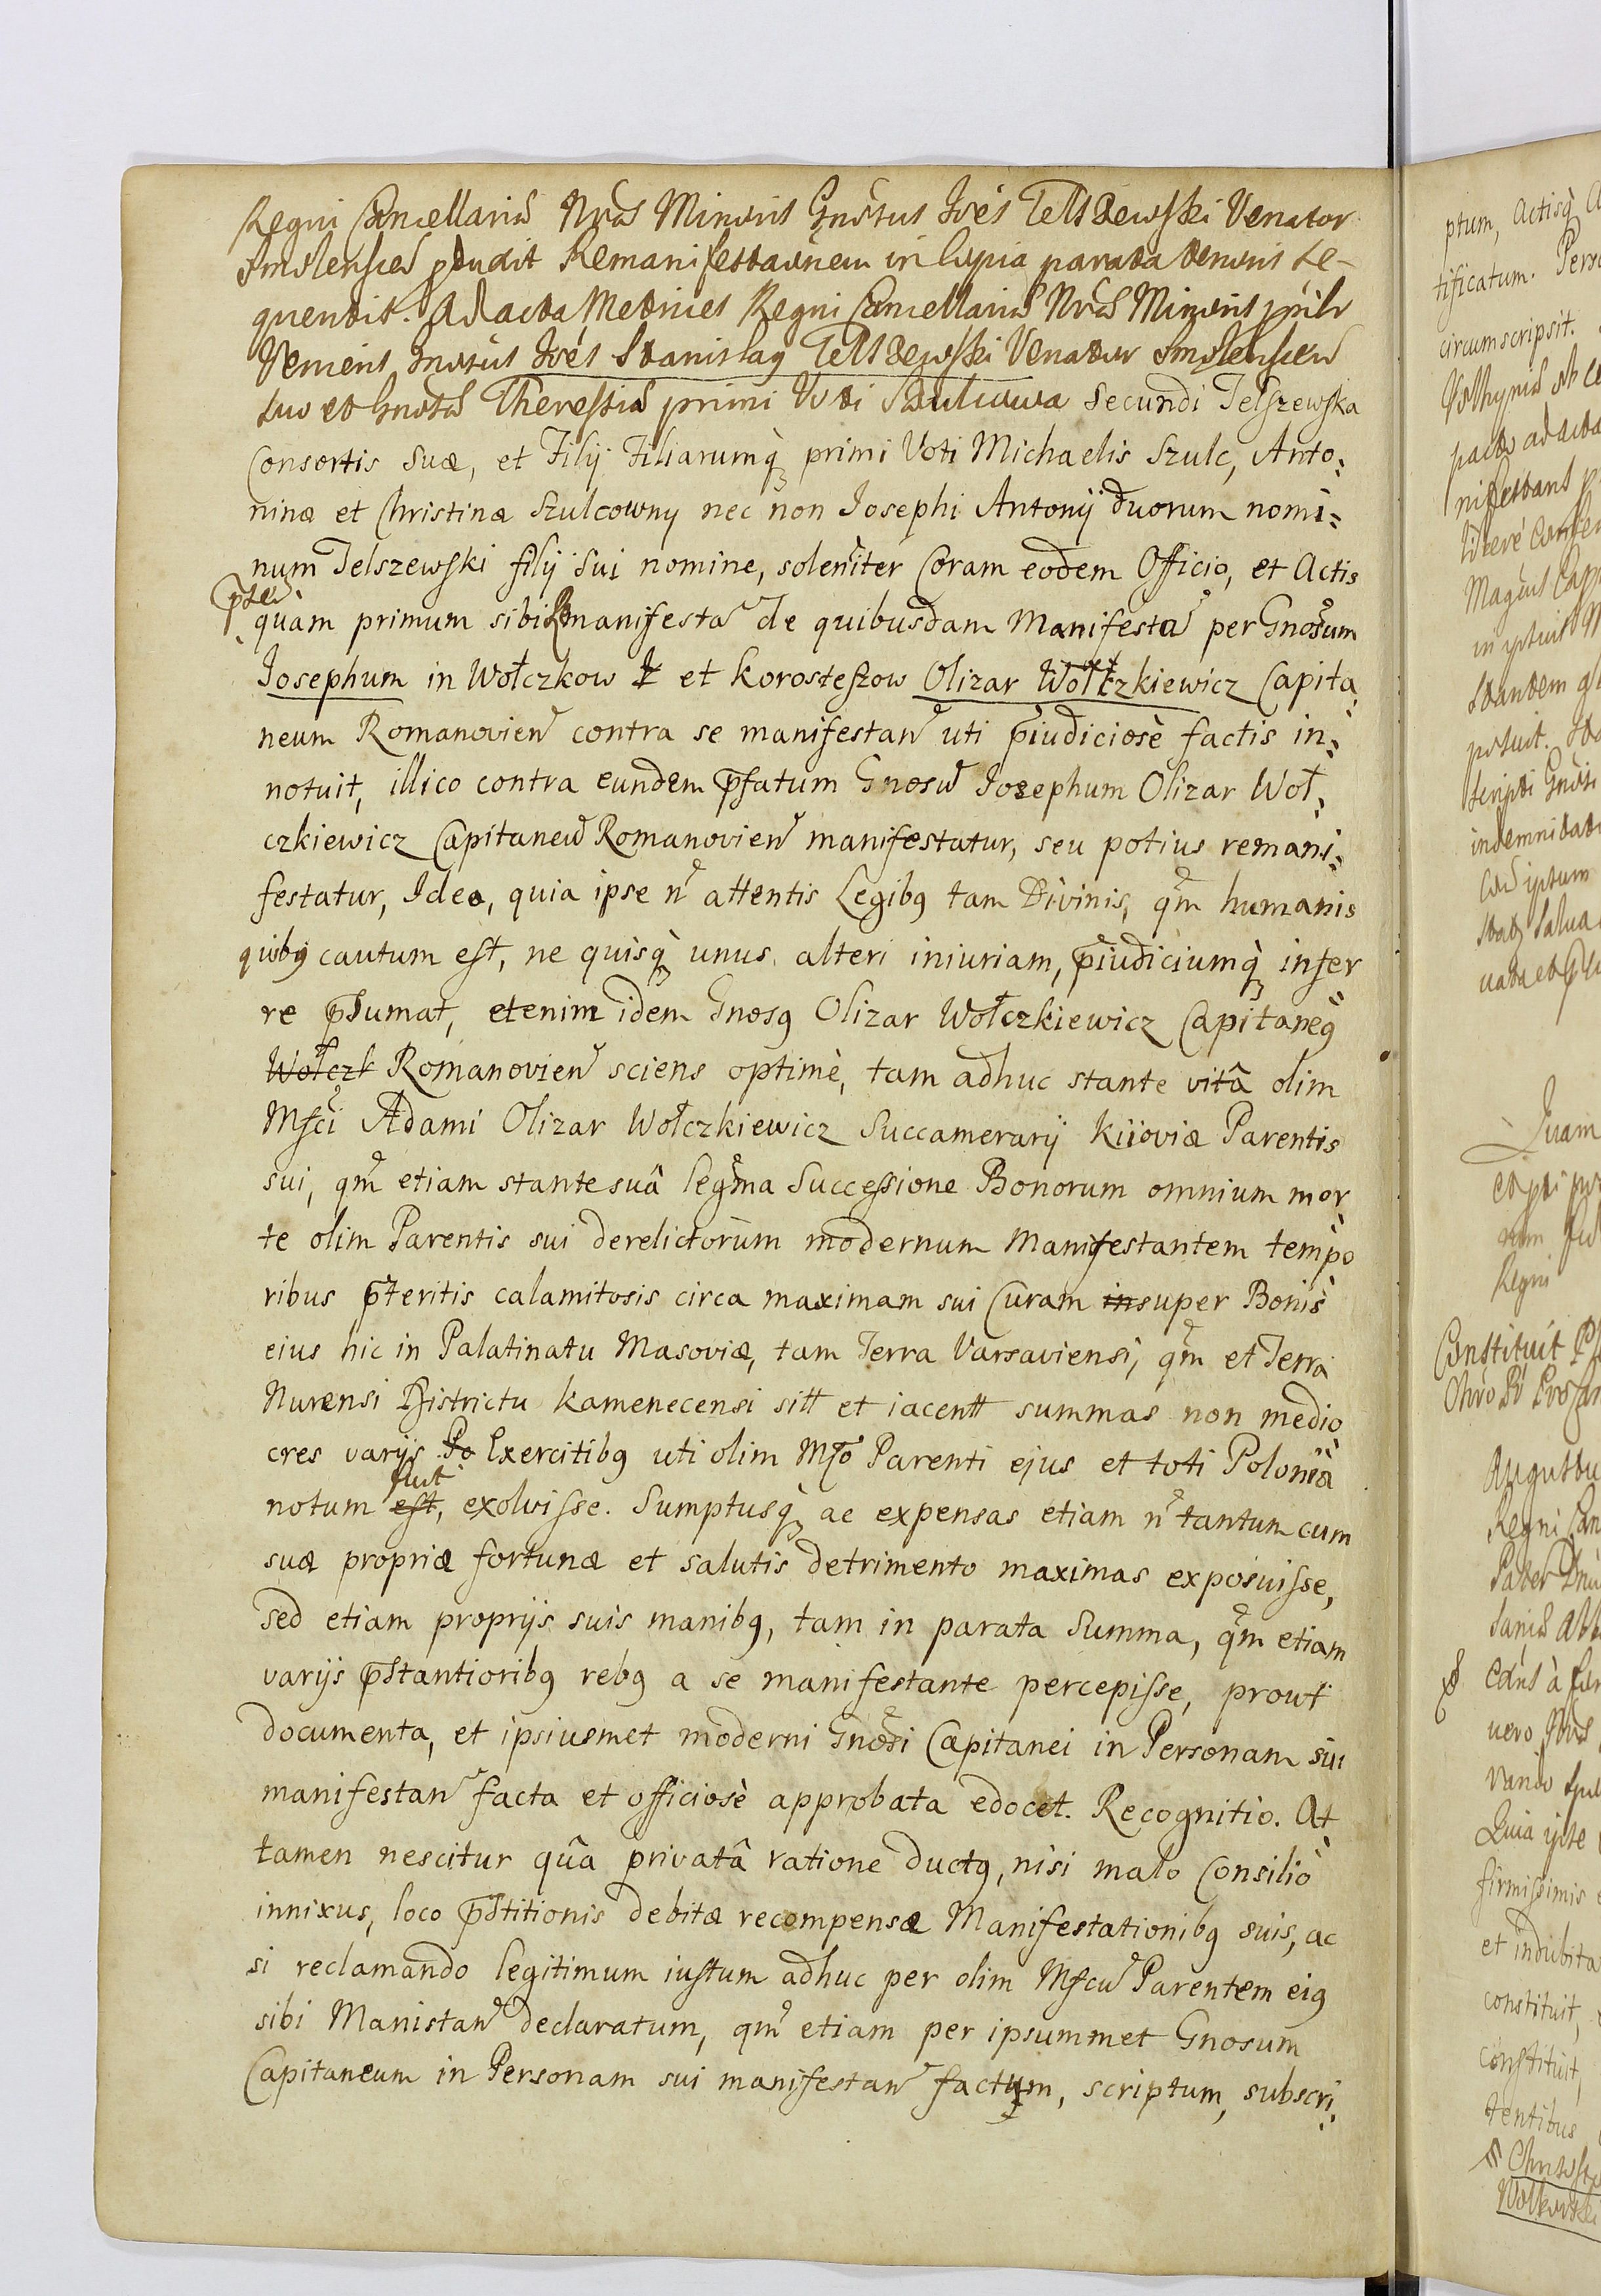 Regni Cancellariæ Nræ Minoris Gnosus Joẽs Telszewski Venator
Smolenscen produxit Remanifestaõnem in Copia parata tenoris se-
quentis. Ad acta Metrices Regni Cancellariæ Nræ Minoris prñlr
Veniens Gnosus Joẽs Stanislaus Telszewski Venator Smolenscen
suo et Gnosæ Theressiæ primi Voti Szulcowa Secundi Telszewska
Consortis Suæ, et Filij Filiarumq̃ primi Voti Michaelis Szulc, Anto:
ninæ et Christinæ Szulcowny nec non Josephi Antonij duorum nomi:
num Telszewski filij Sui nomine, soleñiter Coram eodem Officio, et Actis
pte
quam primum sibi Remanifestañ de quibusdam Manifestañ per Gnosum
Josephum in Wołczkow et Korosteszow Olizar Wołczkiewicz Capita:
neum Romanovień contra se manifestañ uti p̃iudiciosè factis in:
notuit, illico contra eundem p̃fatum Gnosũ Josephum Olizar Woł:
czkiewicz Capitaneũ Romanovień manifestatur, seu potius remani:
festatur, Ideo, quia ipse ñ attentis Legibq tam Divinis, qm̃ humanis
quibq cautum est, ne quisq̃ unus alteri iniuriam, p̃iudiciumq̃ infer
re p̃sumat, etenim idem Gnosq Olizar Wołczkiewicz Capitaneq
Wołczk Romanovień sciens optimè, tam adhuc stante vitâ olim
Mſci Adami Olizar Wołczkiewicz Succamerarij Kijoviæ Parentis
sui, qm̃ etiam stante suâ leg̃ma Successione Bonorum omnium mor
te olim Parentis sui derelictorum modernum Manifestantem tempo
ribus p̃teritis calamitosis circa maximam sui Curam insuper Bonis
eius hic in Palatinatu Masoviæ, tam Terra Varsaviensi, qm̃ et Terra
Nurensi Districtu Kamenecensi sitt et iacentt summas non medio
cres varijs Po Exercitibq uti olim Mſco Parenti ejus et toti Poloniæ
fuit
notum est, exolvisse. Sumptusq̃ ac expensas etiam ñ tantum cum
suæ propriæ fortunæ et salutis detrimento maximas exposuisse,
sed etiam proprijs suis manibq, tam in parata Summa, qm̃ etiam
varijs p̃stantioribq rebq a se manifestante percepisse, prout
documenta, et ipsiusmet moderni Gnosi Capitanei in Personam sui
manifestañ facta et officiosè approbata edocet. Recognitio. At
tamen nescitur quâ privatâ ratione ductq, nisi malo Consilio
innixus, loco p̃stitionis debitæ recompensæ Manifestationibq suis, ac
si reclamando legitimum iustum adhuc per olim Mſcũ Parentem eiq
sibi Manistañ declaratum, qm̃ etiam per ipsummet Gnosum
Capitaneum in Personam sui manifestañ factum, scriptum, subscri:
ptum, Actisq̃
tificatum.
circumscripsit.
indemnitate
Quam
Regni
Constituit
Regni
Quia ipse
firmissimis
et indubita
constituit,
constituit,
tentibus